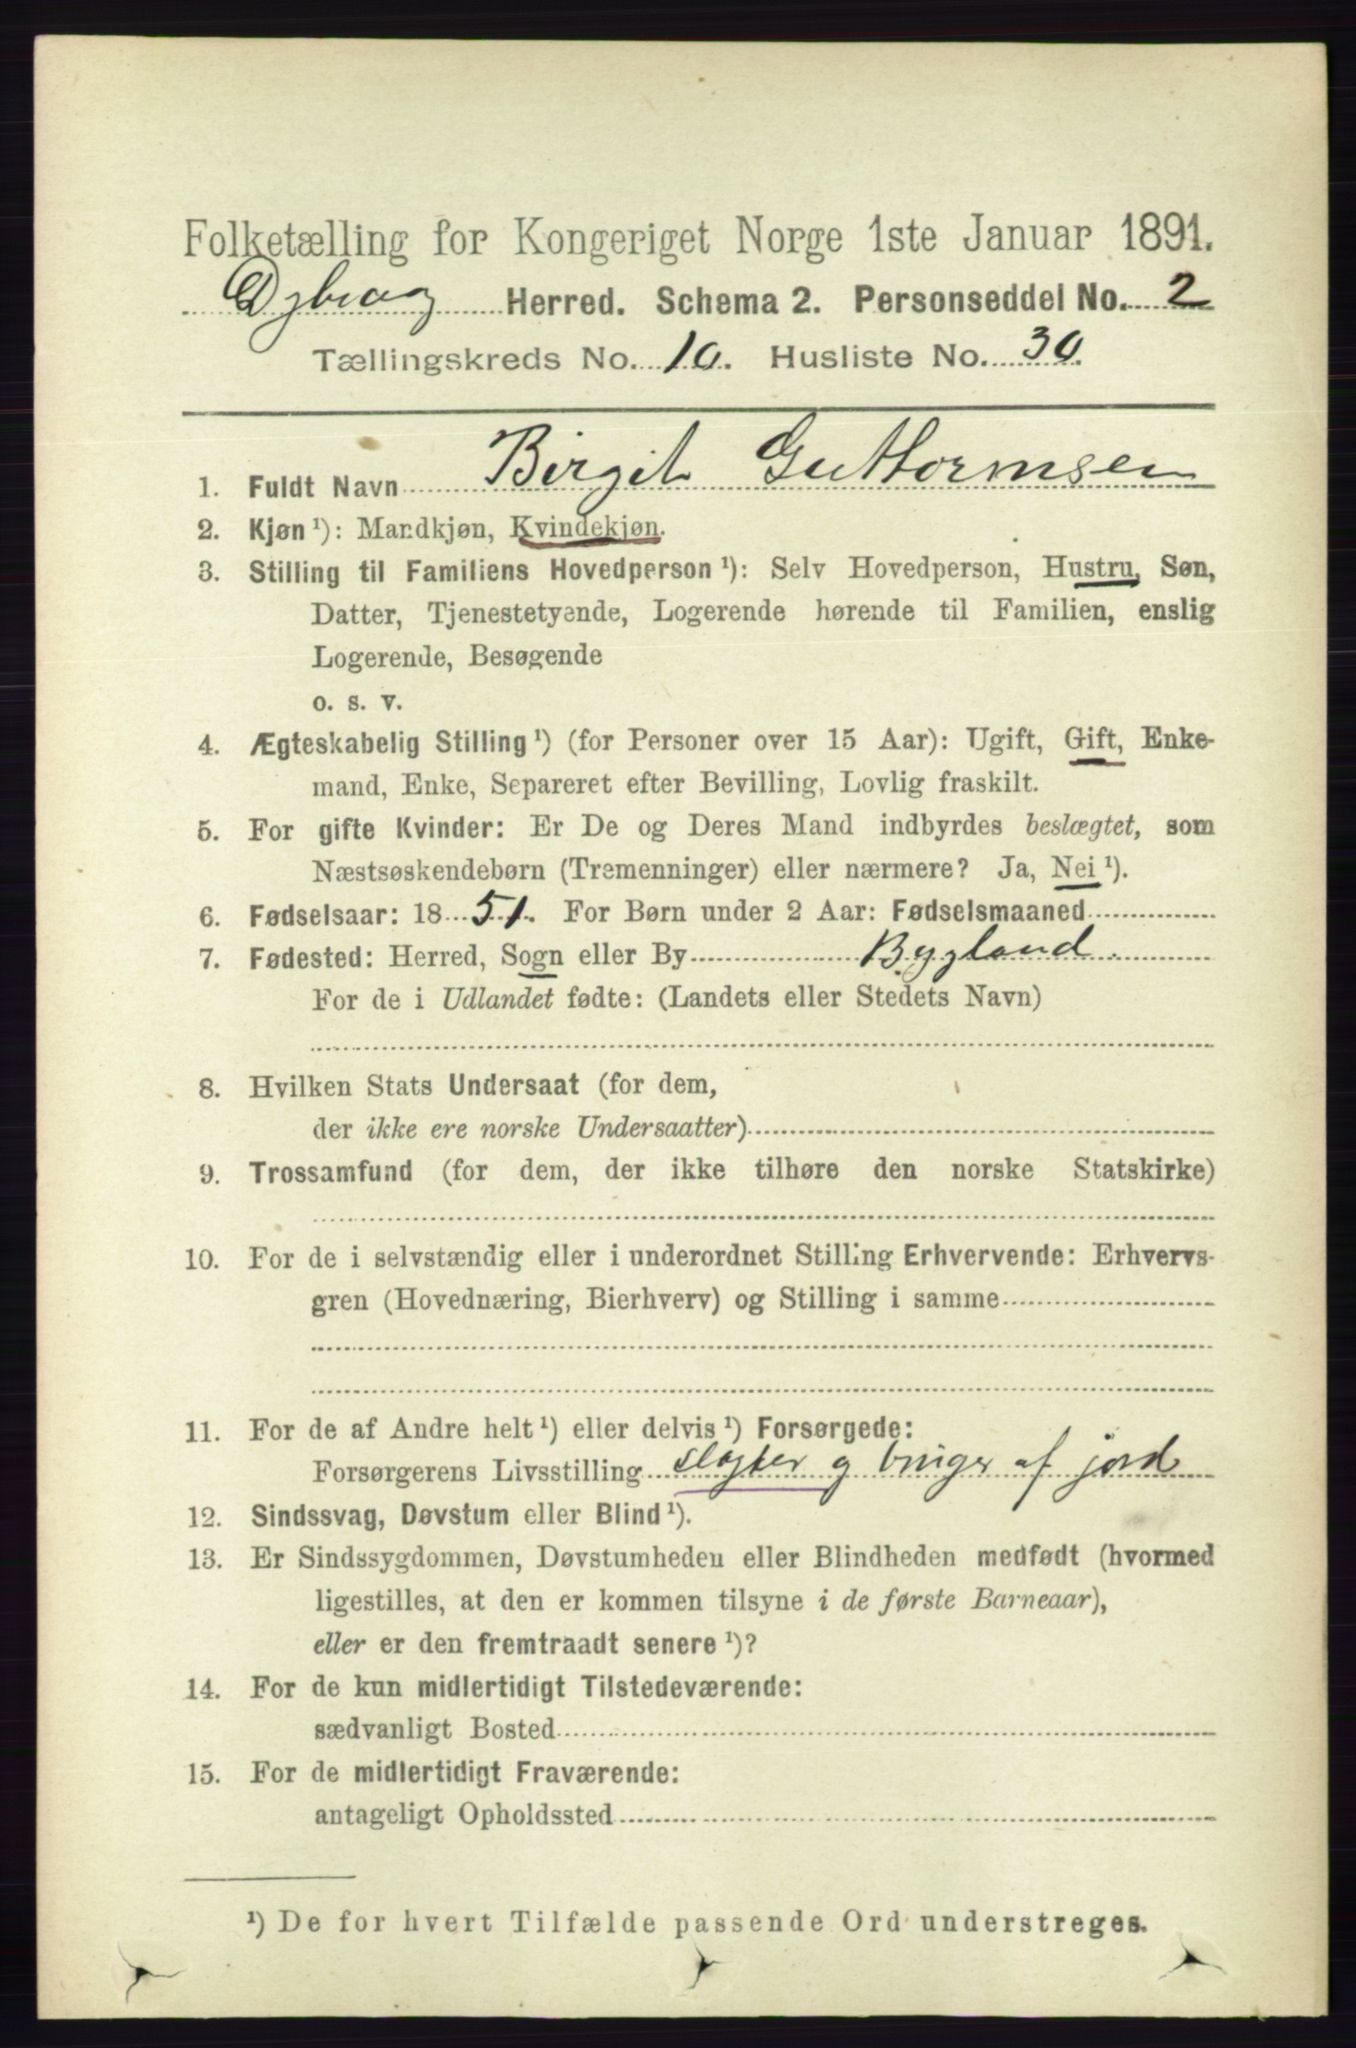 Folketælling for Kongeriget Norge 1ste Januar 1891.
Dybvaag Herred. Schema 2. Personseddel No. 2
Tællingskreds No. 10. Husliste No. 30.
1. Fuldt Navn Birgit Guttormsen
2. Kjøn ¹): Mandkjøn, Kvindekjøn.
3. Stilling til Familiens Hovedperson ¹): Selv Hovedperson, Hustru, Søn,
Datter, Tjenestetyende, Logerende hørende til Familien, enslig
Logerende, Besøgende
o. s. v.
4. Ægteskabelig Stilling ¹) (for Personer over 15 Aar): Ugift, Gift, Enke-
mand, Enke, Separeret efter Bevilling, Lovlig fraskilt.
5. For gifte Kvinder: Er De og Deres Mand indbyrdes beslægtet, som
Næstsøskendebørn (Tremenninger) eller nærmere? Ja, Nei ¹).
6. Fødselsaar: 1851. For Børn under 2 Aar: Fødselsmaaned
7. Fødested: Herred, Sogn eller By Bygland.
For de i Udlandet fødte: (Landets eller Stedets Navn)
8. Hvilken Stats Undersaat (for dem,
der ikke ere norske Undersaatter)
9. Trossamfund (for dem, der ikke tilhøre den norske Statskirke)
10. For de i selvstændig eller i underordnet Stilling Erhvervende: Erhvervs-
gren (Hovednæring, Bierhverv) og Stilling i samme
11. For de af Andre helt ¹) eller delvis ¹) Forsørgede:
Forsørgerens Livsstilling slagter og bruger af jord
12. Sindssvag, Døvstum eller Blind ¹).
13. Er Sindssygdommen, Døvstumheden eller Blindheden medfødt (hvormed
ligestilles, at den er kommen tilsyne i de første Barneaar),
eller er den fremtraadt senere ¹)?
14. For de kun midlertidigt Tilstedeværende:
sædvanligt Bosted
15. For de midlertidigt Fraværende:
antageligt Opholdssted
¹) De for hvert Tilfælde passende Ord understreges.